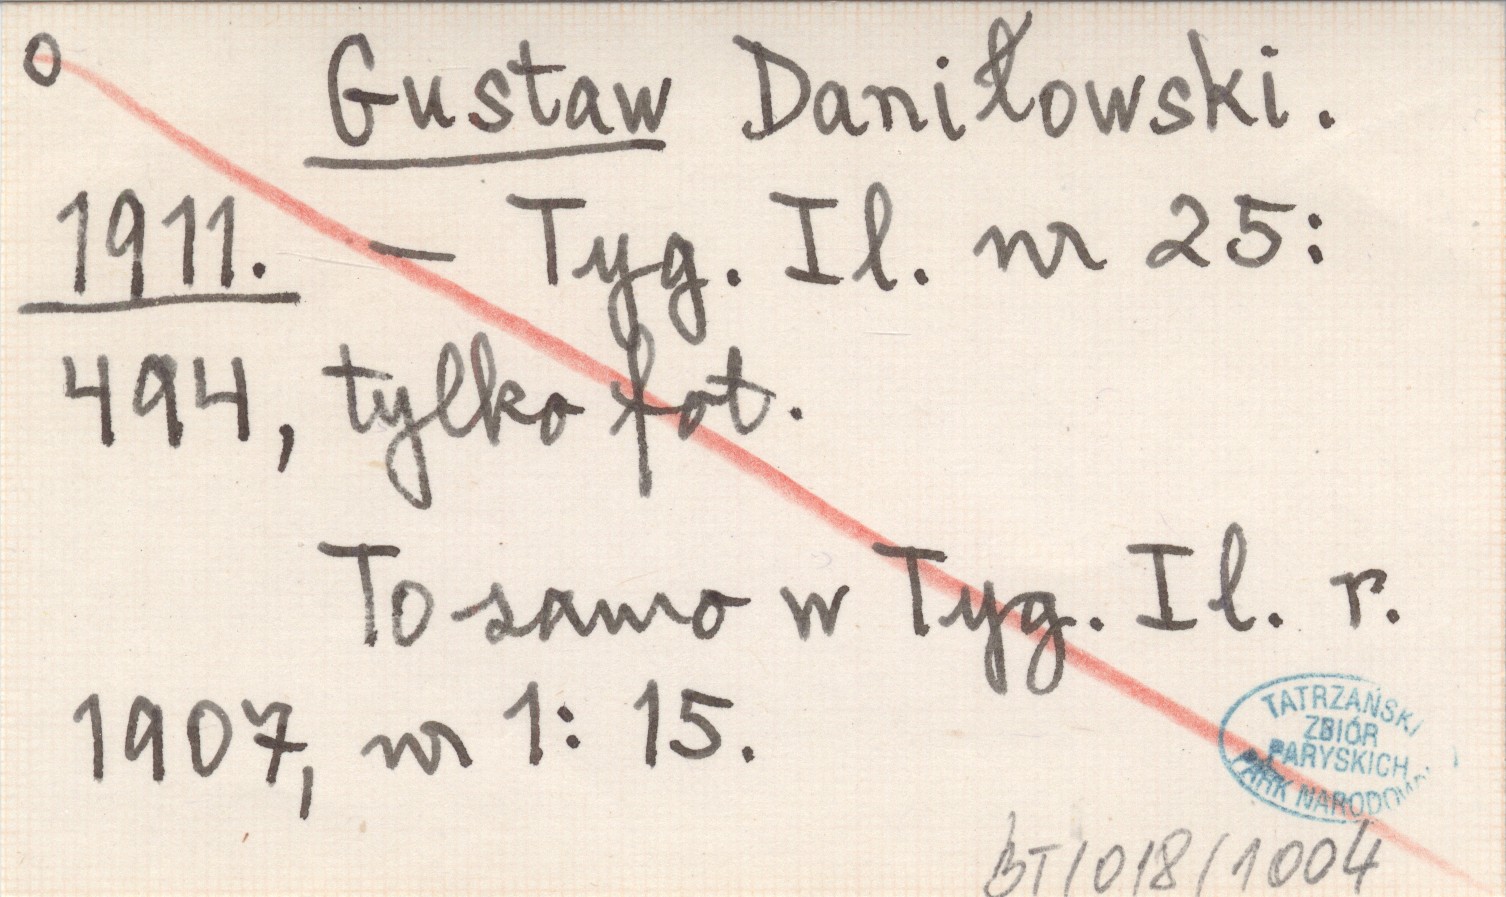 O
Gustaw Daniłowski.
1911. — Tyg. Il. nr 25:
494, tylko fot.
To samo w Tyg. Il. r.
1907, nr 1: 15.
TATRZAŃSKI
ZBIÓR
PARYSKICH
PARK NARODOW
BT/018/1004